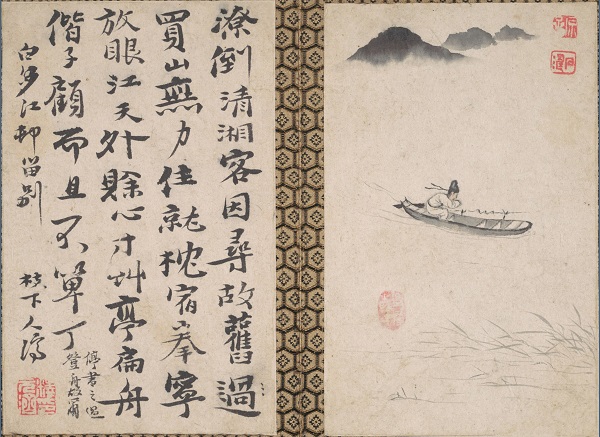 潦倒清湘客因尋故舊過
買山無力住就枕宿拳寧
放眼江天外賒心寸艸亭扁舟
偕子顧而且不單丁
白沙江邨留別
枝下人濟